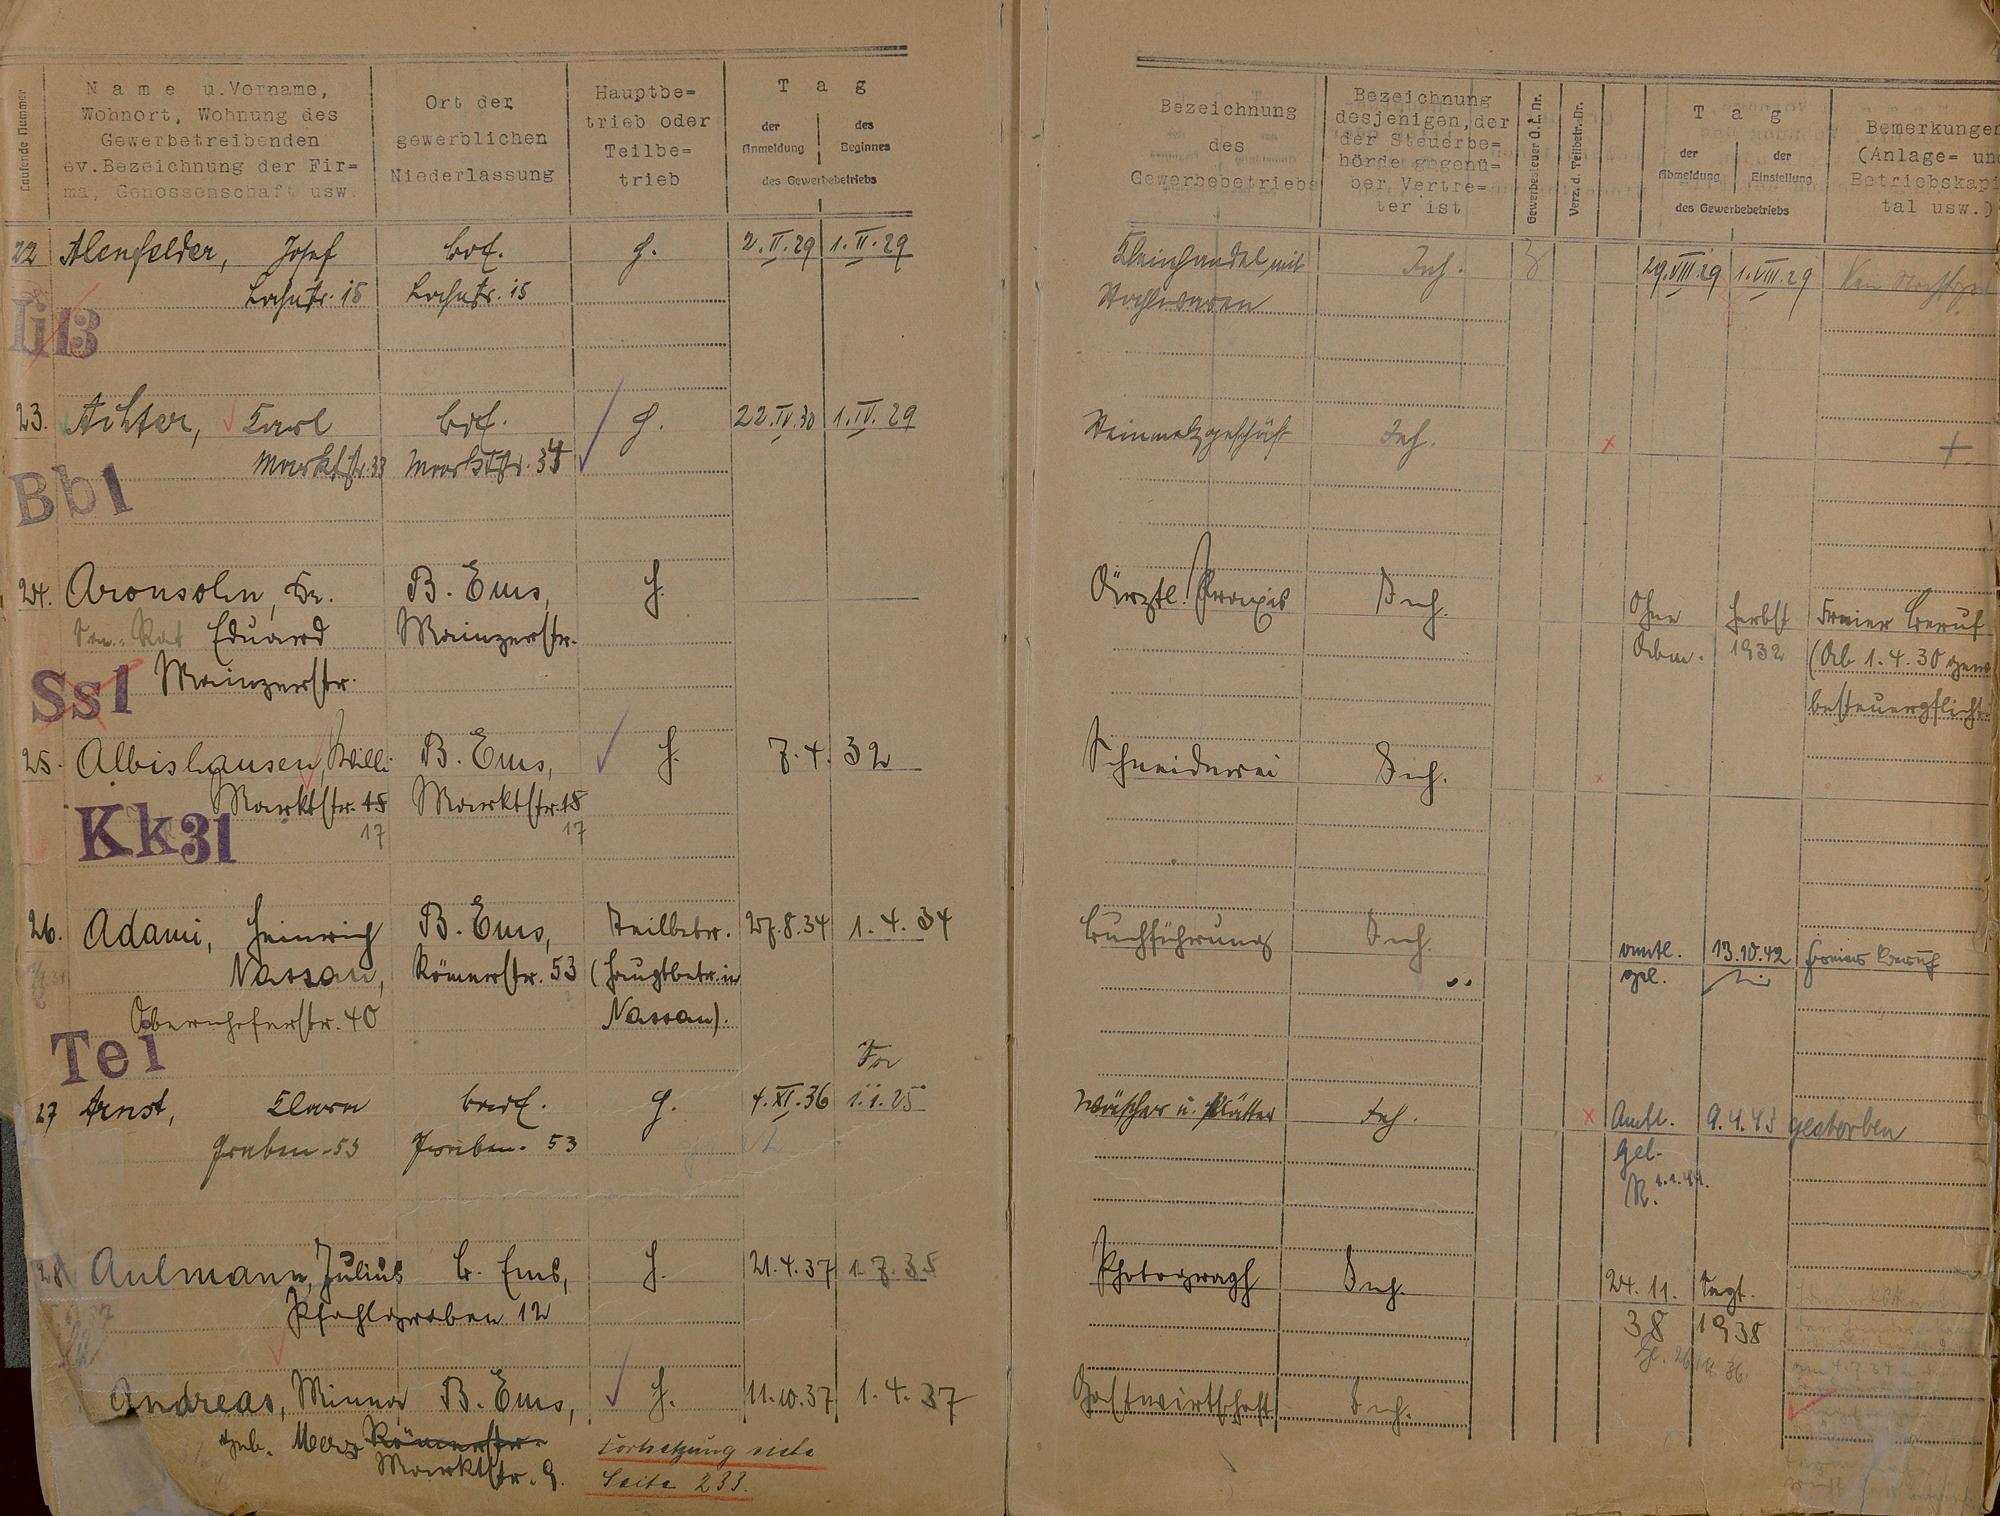 Laufende Nummer
Name u. Vorname,
Wohnort, Wohnung des
Gewerbetreibenden
ev. Bezeichnung der Fir=
ma, Genossenschaft usw.
Ort der
gewerblichen
Niederlassung
Hauptbe=
trieb oder
Teilbe=
trieb
Tag
der
Anmeldung
des
Beginnes
des Gewerbebetriebs
Bezeichnung
des
Gewerbebetriebs
Bezeichnung
desjenigen, der
der Steuerbe=
hörde gegenü=
ber Vertre=
ter ist
Gewerbesteuer U.L.Nr.
Verz. d. Teilbetr. Nr.
Tag
der
Abmeldung
der
Einstellung
des Gewerbebetriebs
Bemerkungen
(Anlage= und
Betriebskapi
tal usw.)
22 Alenfelder, Josef H. 2.II.29 1.II.29 Kleinhandel mit Inh. 29.VIII.29 1.VIII.29
Lahnstr. 15 Lahnstr. 15
Ii13
23. Achter, Karl H. 22.IV.30 1.IV.29 Inh. +
Marktstr. 33 Marktstr. 34
Bb1
24. Aronsohn, Dr. B. Ems, H. Ärztl. Praxis Inh. Ohne Herbst Freier Beruf
San. Rat Eduard Mainzerstr. Abm. 1932 (Ab 1.4.30 gew
Mainzerstr. besteuerpflicht
Ss1
25. Albishausen, Willi B. Ems, H. 7.4.32 Schneiderei Inh.
Marktstr. 18 Marktstr. 18
17 17
Kk31
26. Adami, Heinrich B. Ems, Teilbetr. 27.8.34 1.4.34 Buchführung Inh. amtl. 13.10.42 freier Beruf
Nassau, Römerstr. 53 (Hauptbetr. in gel.
Obernhoferstr. 40 Nassau).
Tei
27 Arnst, Klara H. 4.XI.36 1.1.25 Wäscher u. Plätter Inh. Amtl. 9.4.43 gestorben
Graben 53 Graben 53 gel.
28 Aulmann, Julius B. Ems, H. 21.4.37 1.7.35 Photograph Inh. 24.11. Sept.
Pfahlgraben 12 38 1938
Andreas, Minna B. Ems, H. 11.10.37 1.4.37 Gastwirtschaft Inh.
geb. Merz Römerstr.
Marktstr. 9.
Fortsetzung siehe
Seite 233.